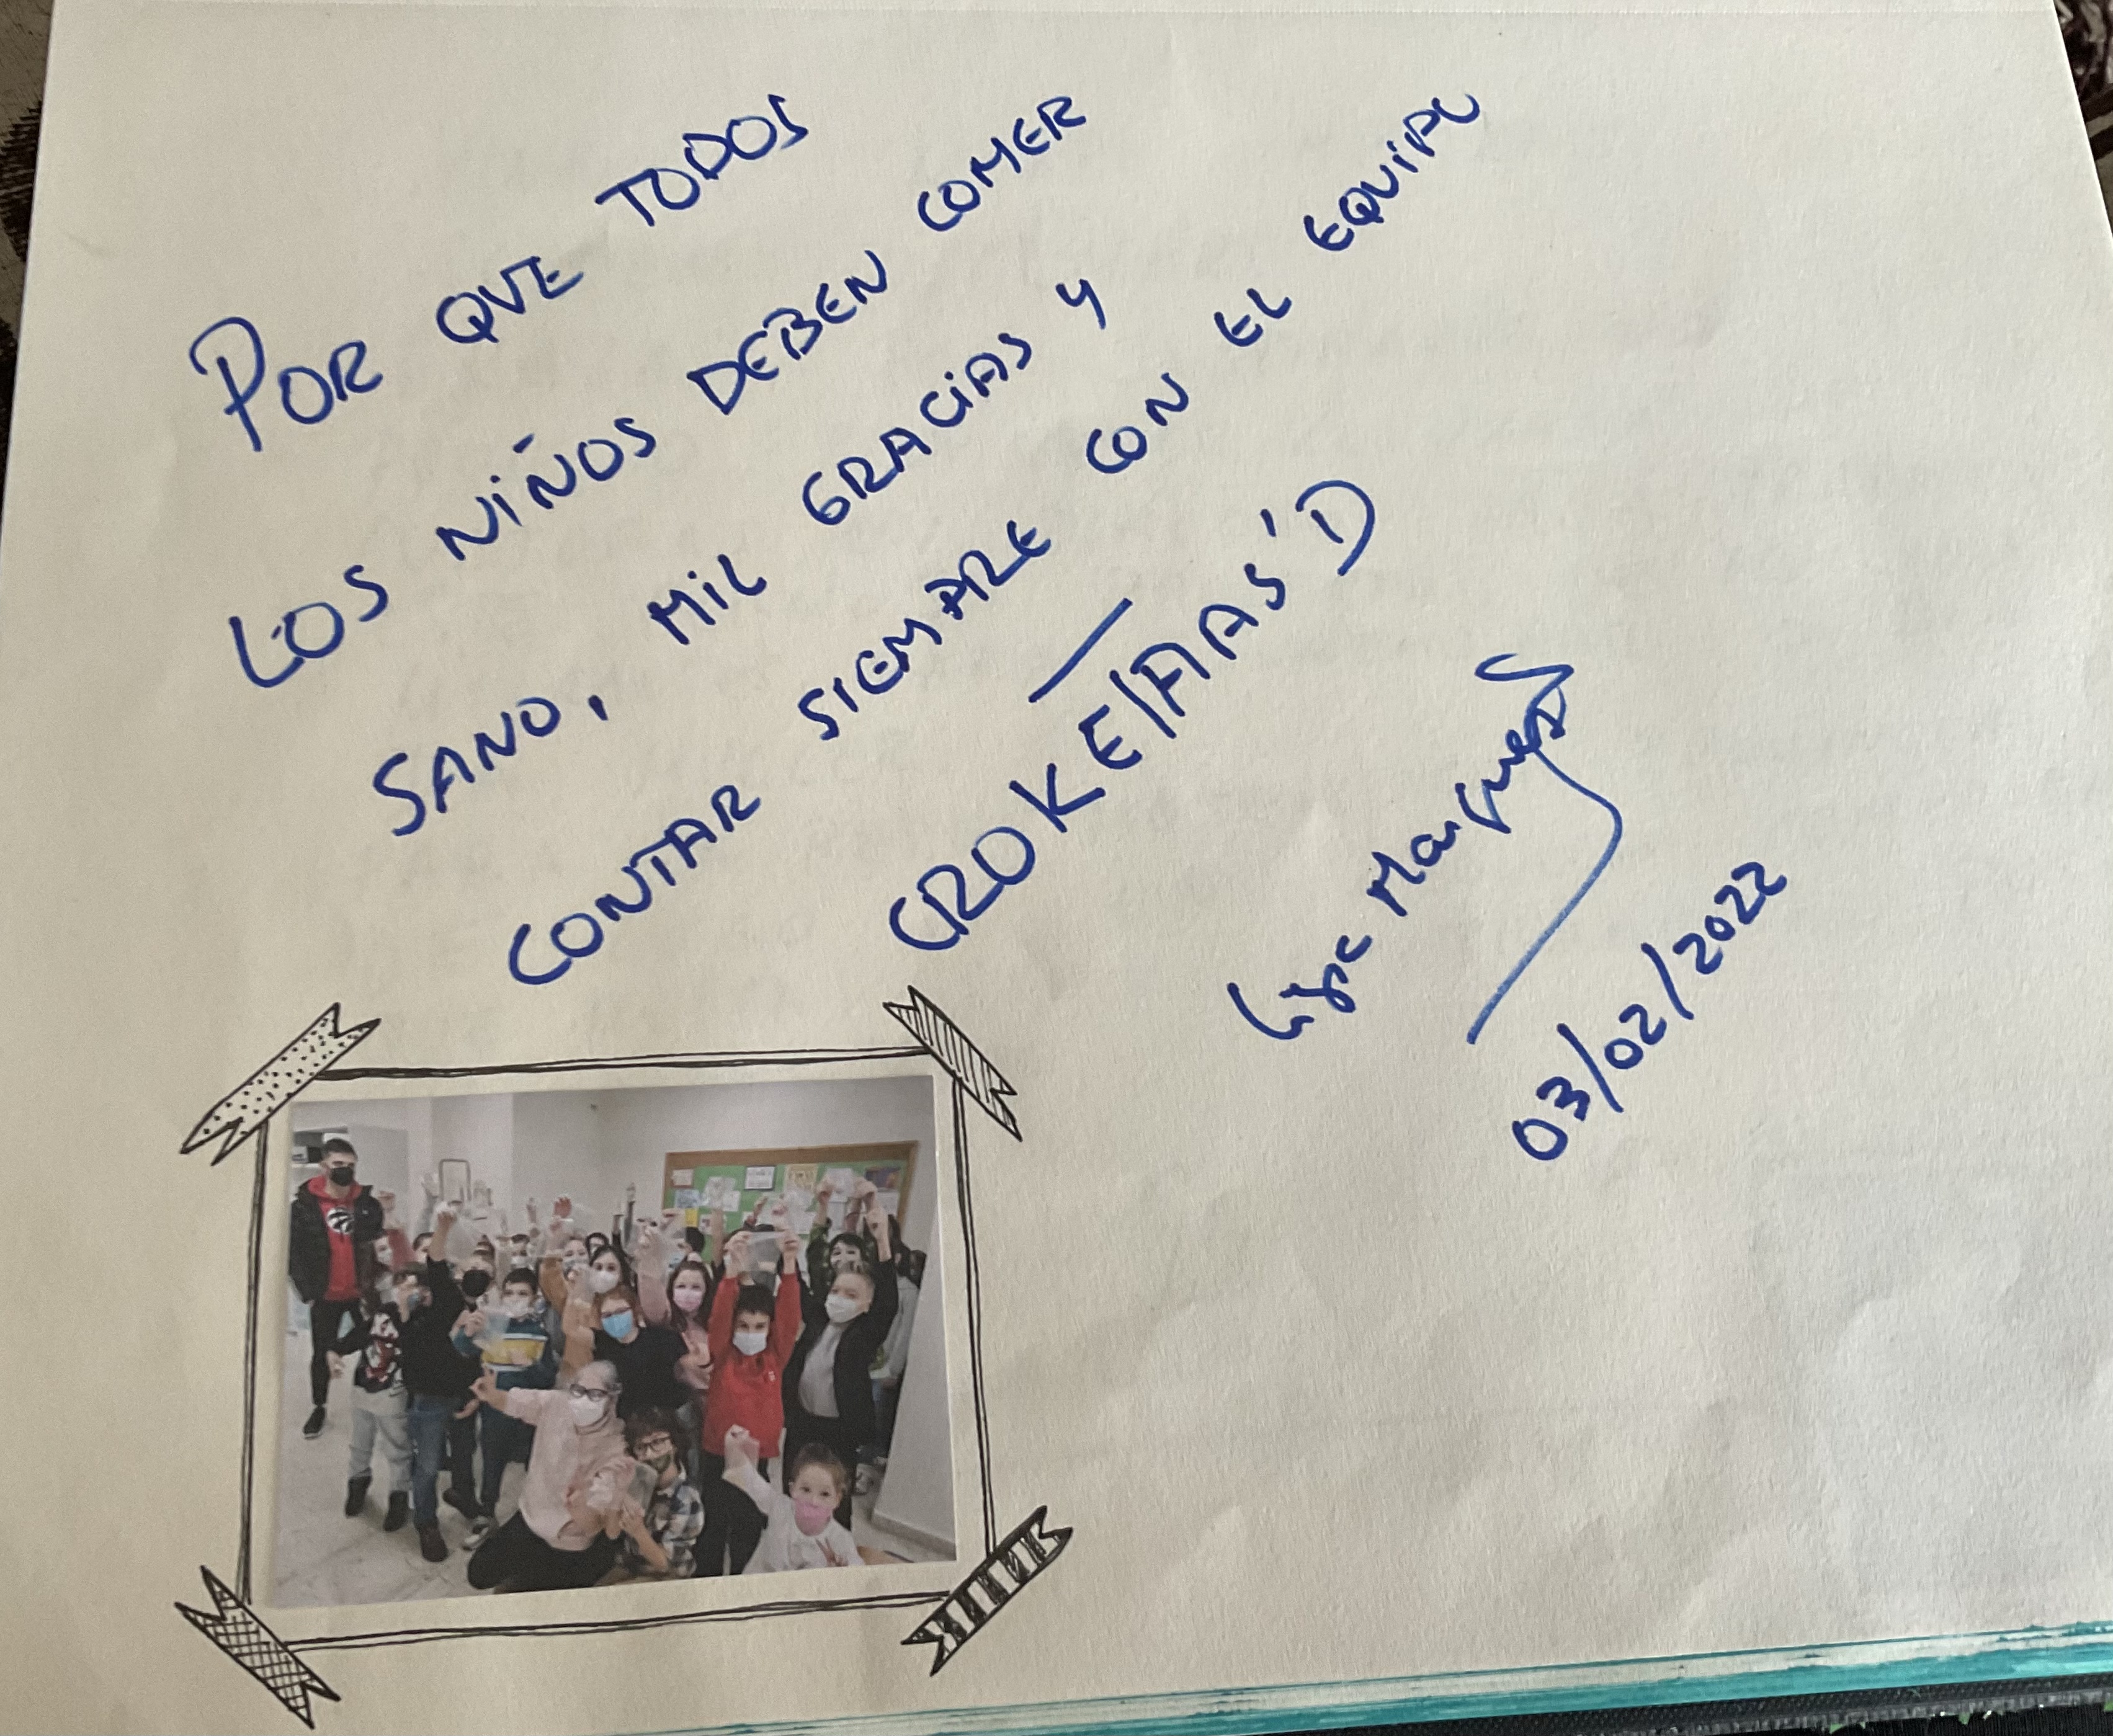 POR QUE TODOS
LOS NIÑOS DEBEN COMER
SANO, MIL GRACIAS Y
CONTAR SIEMPRE CON EL EQUIPO
CROKE/FAAS'D
03/02/2022